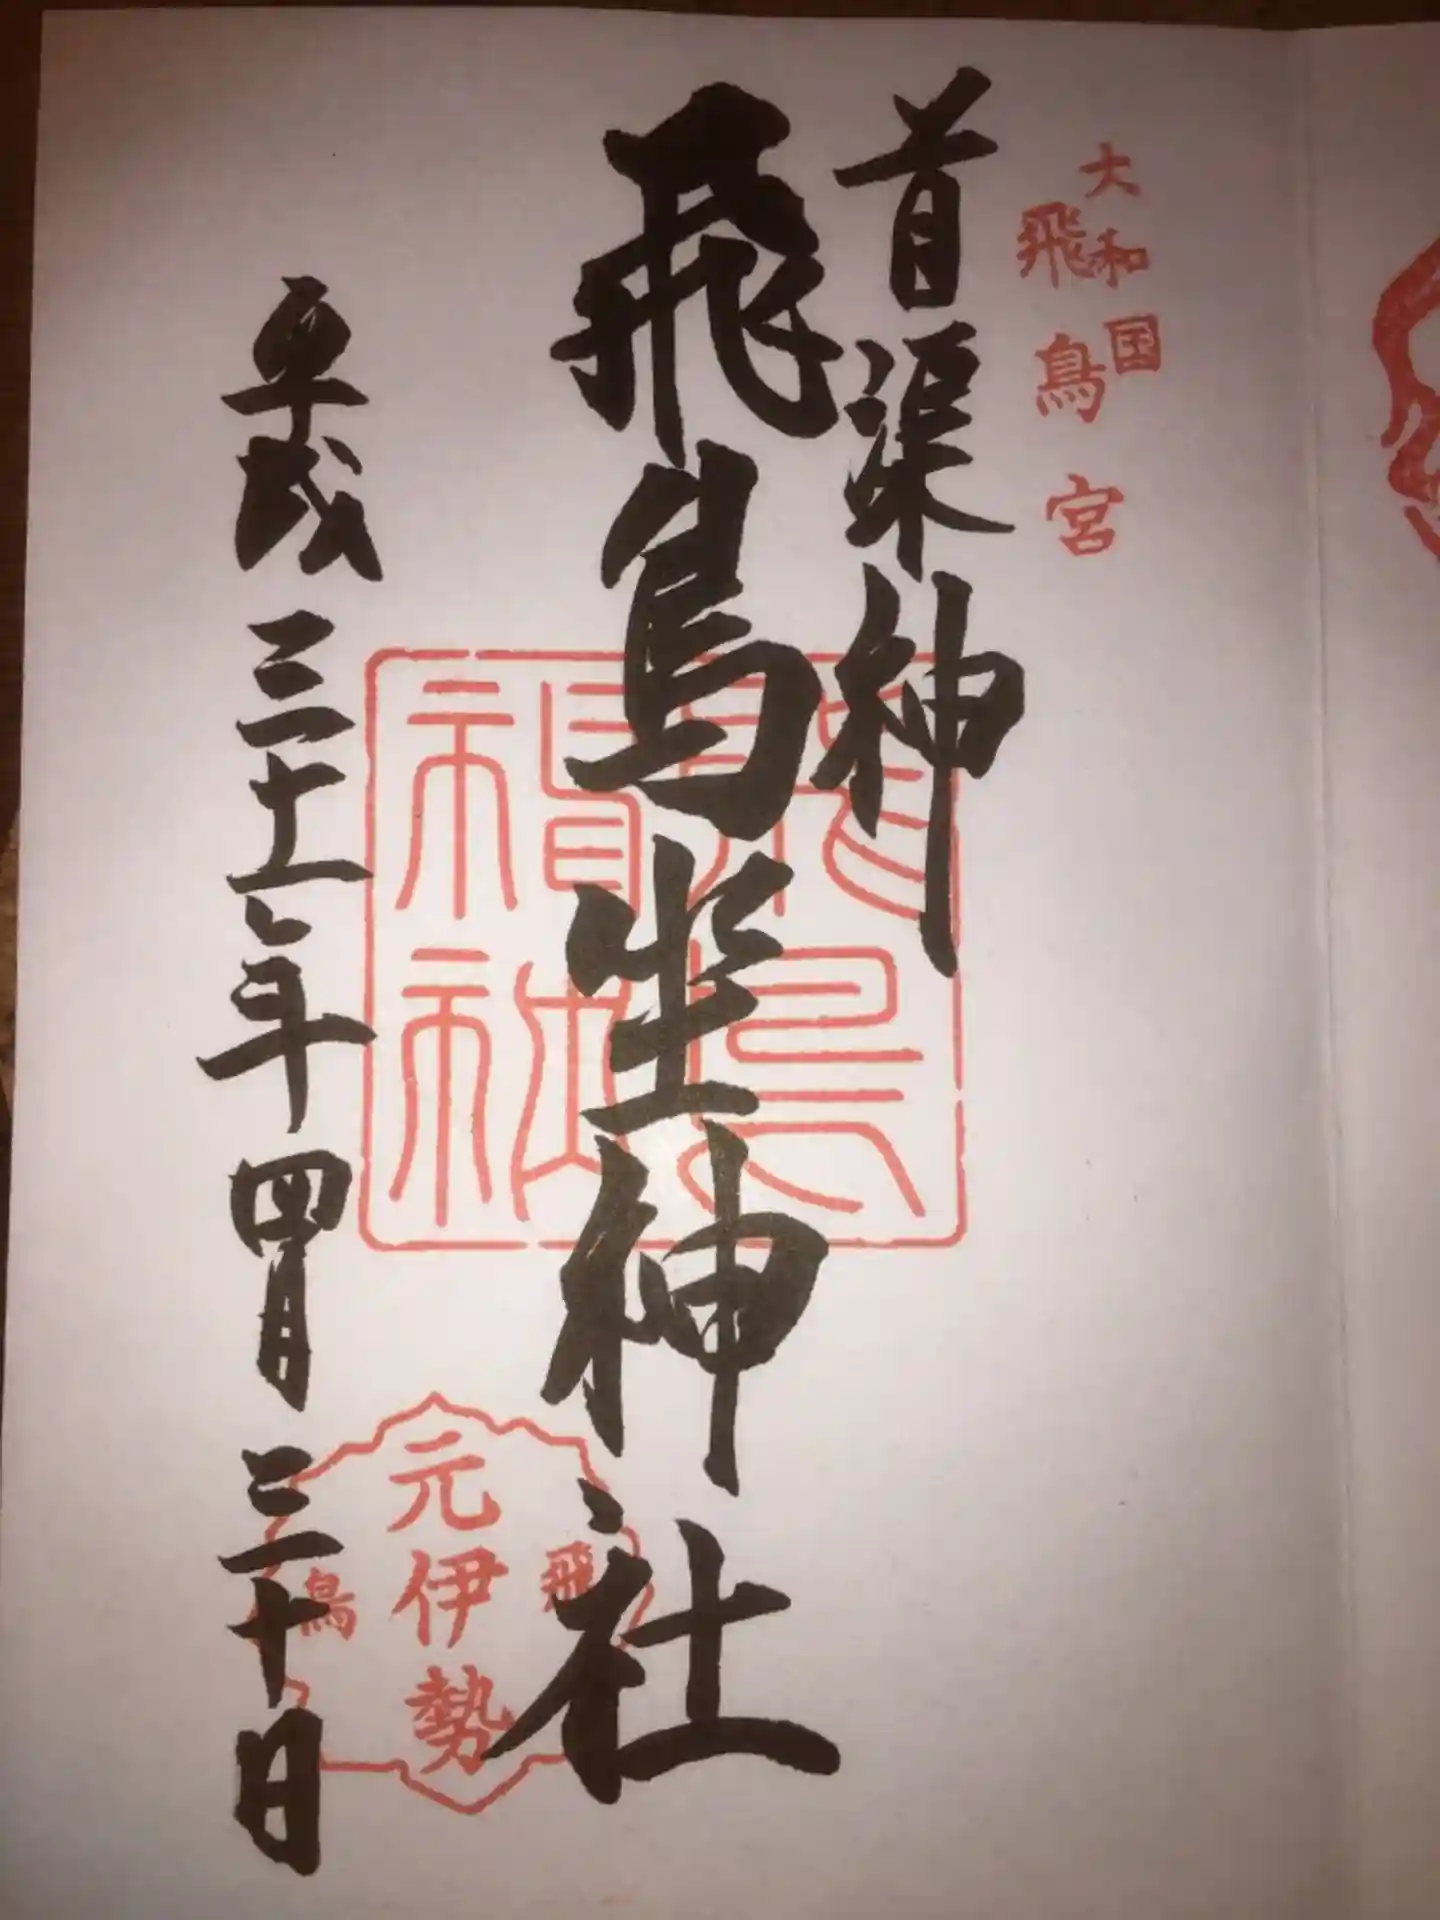 大和国
飛鳥宮
首渠神
飛鳥坐神社
平成三十一年四月三十日
飛鳥
元伊勢